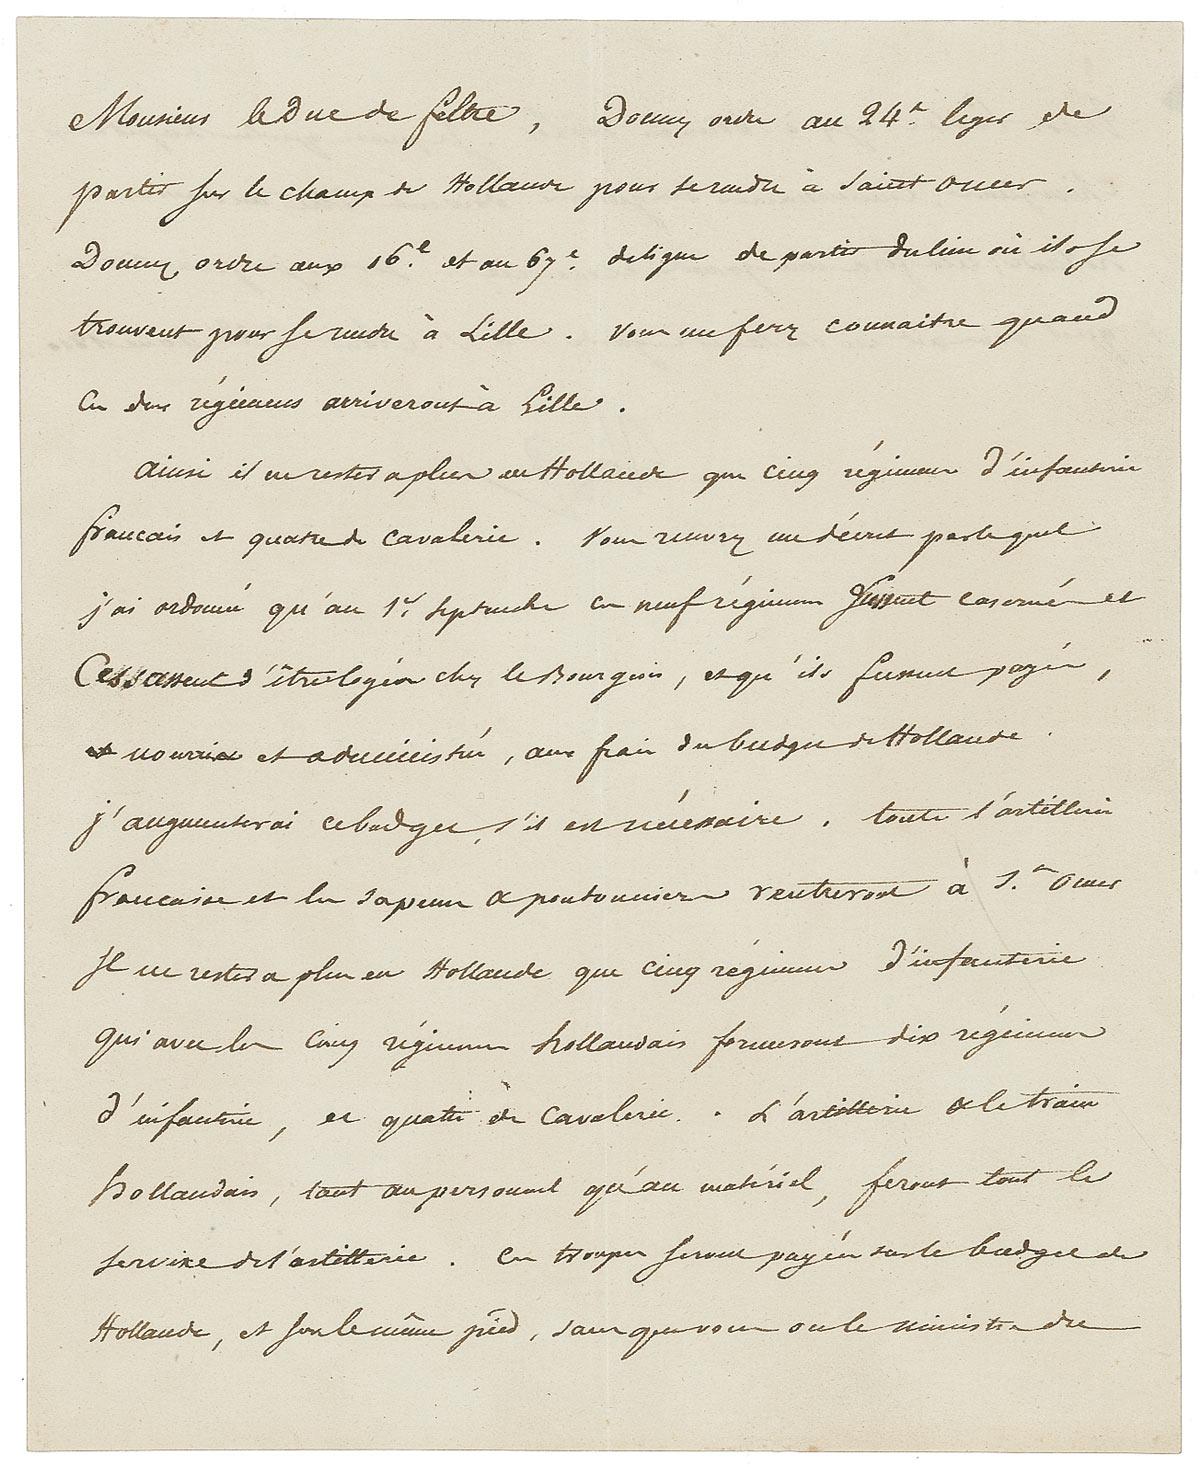 Monsieur le Duc de feltre, Donnez ordre au 24e. leger de
partir sur le champ de Hollande pour se rendre à Saint Omer.
Donnez ordre aux 16e. et au 67e. de ligne de partir du lieu où ils se
trouvent pour se rendre à Lille. Vous me ferez connaitre quand
ces deux régimens arriveront à Lille.
ainsi il ne restera plus en Hollande que cinq régimens d'infanterie
français et quatre de cavalerie. Vous recevrez un décret par lequel
j'ai ordonné qu'au 1er. septembre ces neuf régimens fussent casernés et
Cessassent d'être logés chez le Bourgeois, et qu'ils fussent payés,
nourris et administrés, aux frais du budget de Hollande.
j'augmenterai ce budget, s'il est nécessaire. toute l'artillerie
française et les sapeurs & pontonniers rentreront à St. Omer
Il ne restera plus en Hollande que cinq régimens d'infanterie
qui avec les cinq régimens hollandais formeront dix régimens
d'infanterie, et quatre de cavalerie. L'artillerie & le train
hollandais, tant au personnel qu'au matériel, feront tout le
service de l'artillerie. Ces troupes seront payées sur le budget de
Hollande, et sur le même pied, sans que vous ou le ministre du